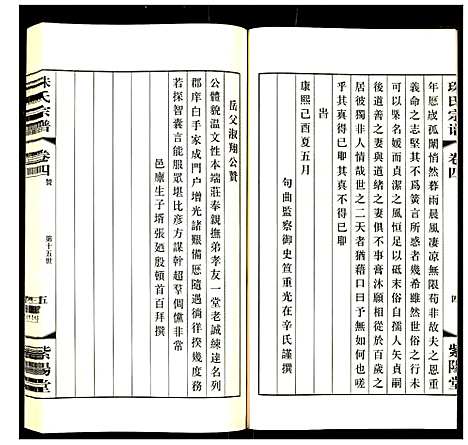 珠氏宗譜
卷四
四
紫陽堂
年愿歲孤闈悄然暮雨晨風凄凉無限苟非故夫之
義命之志堅其不為簧言所惑者幾希雖然世俗之行未
可以果名媛而頑廉懦立之風恒足以砥末俗自孺人矢貞嗣
後道善之妻與道健之妻俱不事膏沐願相從於百歲之
居彼獨非人情哉世之二天者藉口不諒其亦如何也嗟
乎其真不得已耶其真不得已耶
旹
康熙己酉夏五月
句曲監察御史笪重光在辛氏謹撰
岳父淑翔公贊
公體貌溫文性本端莊奉親撫弟孝友一堂老誠練達名列
郡庠白手家成門户增光諸艱備愿隨遇徜徉揆幾度務
若探智囊言能服眾堪比彥方謀幹超羣倜儻非常
邑廩生子壻張廼殷頓首百拜撰
珠氏宗譜
卷四
贊
第十五世
五
紫陽堂